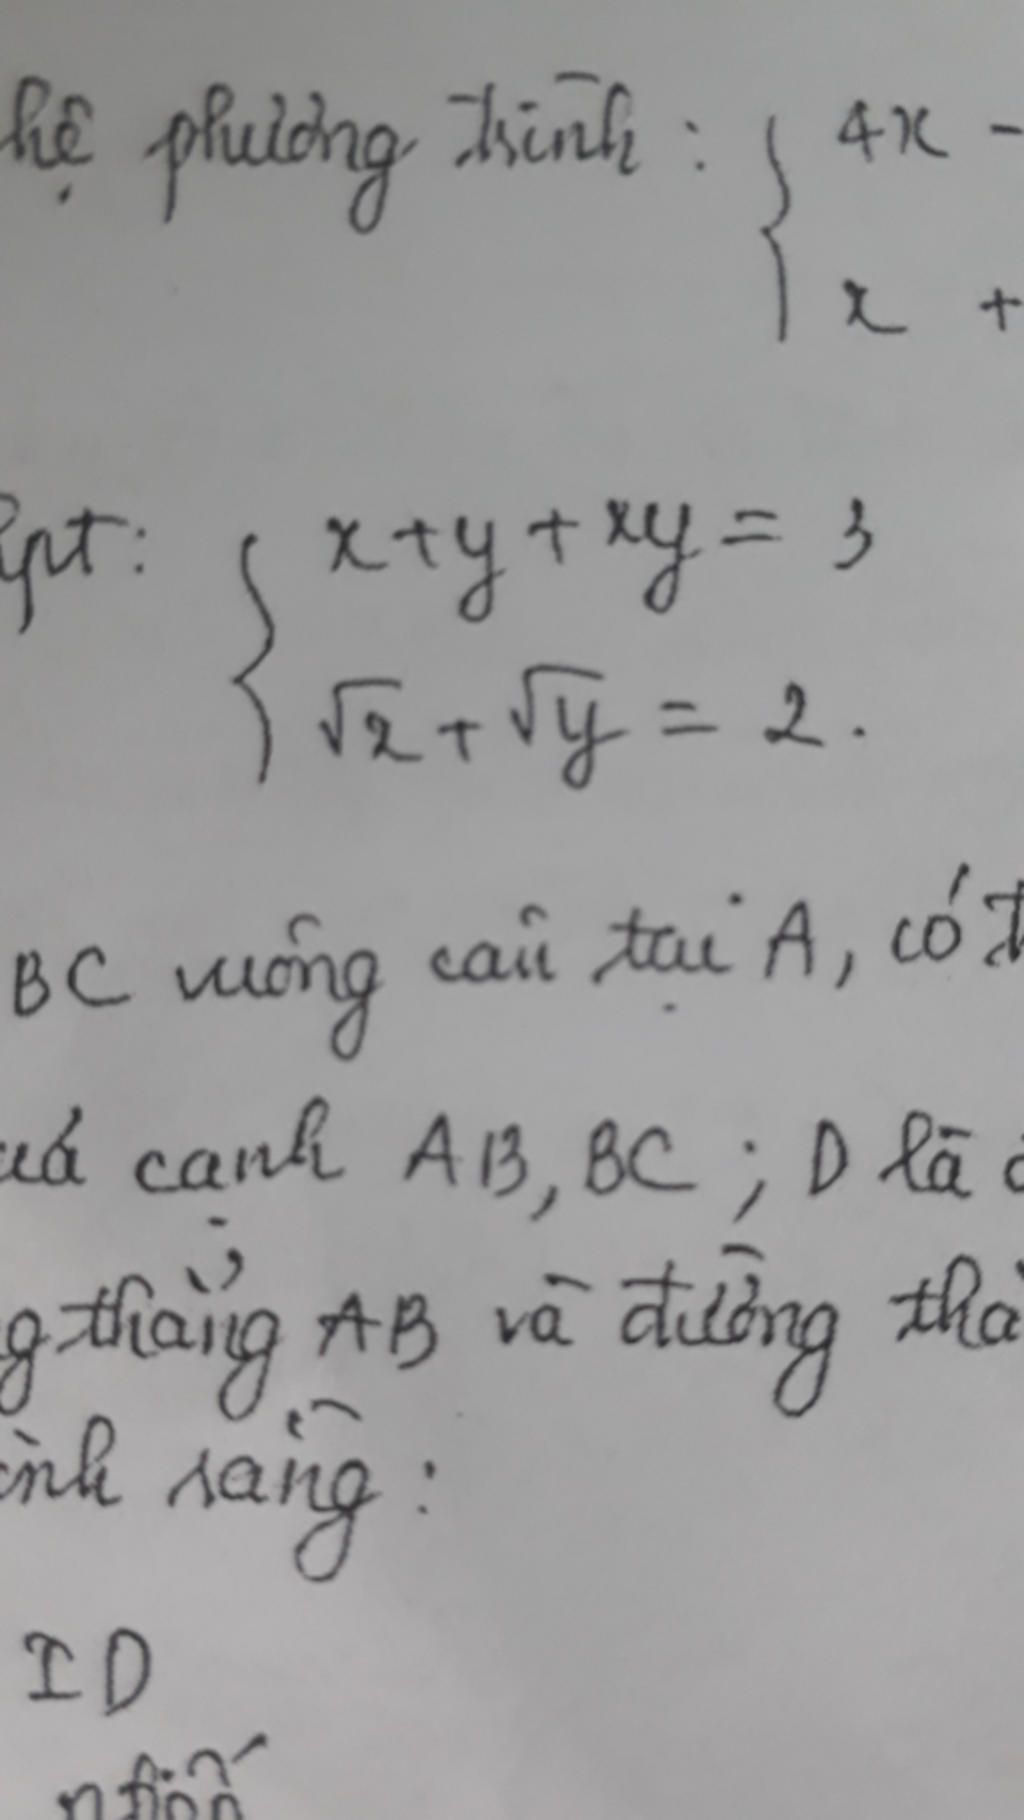 hệ phương trình : { 4x -
x +
hpt: { x+y+xy = 3
√x + √y = 2.
BC vuông cân tại A, có t
uả cạnh AB, BC ; D là
g thẳng AB và đường thẳ
inh rằng :
ID